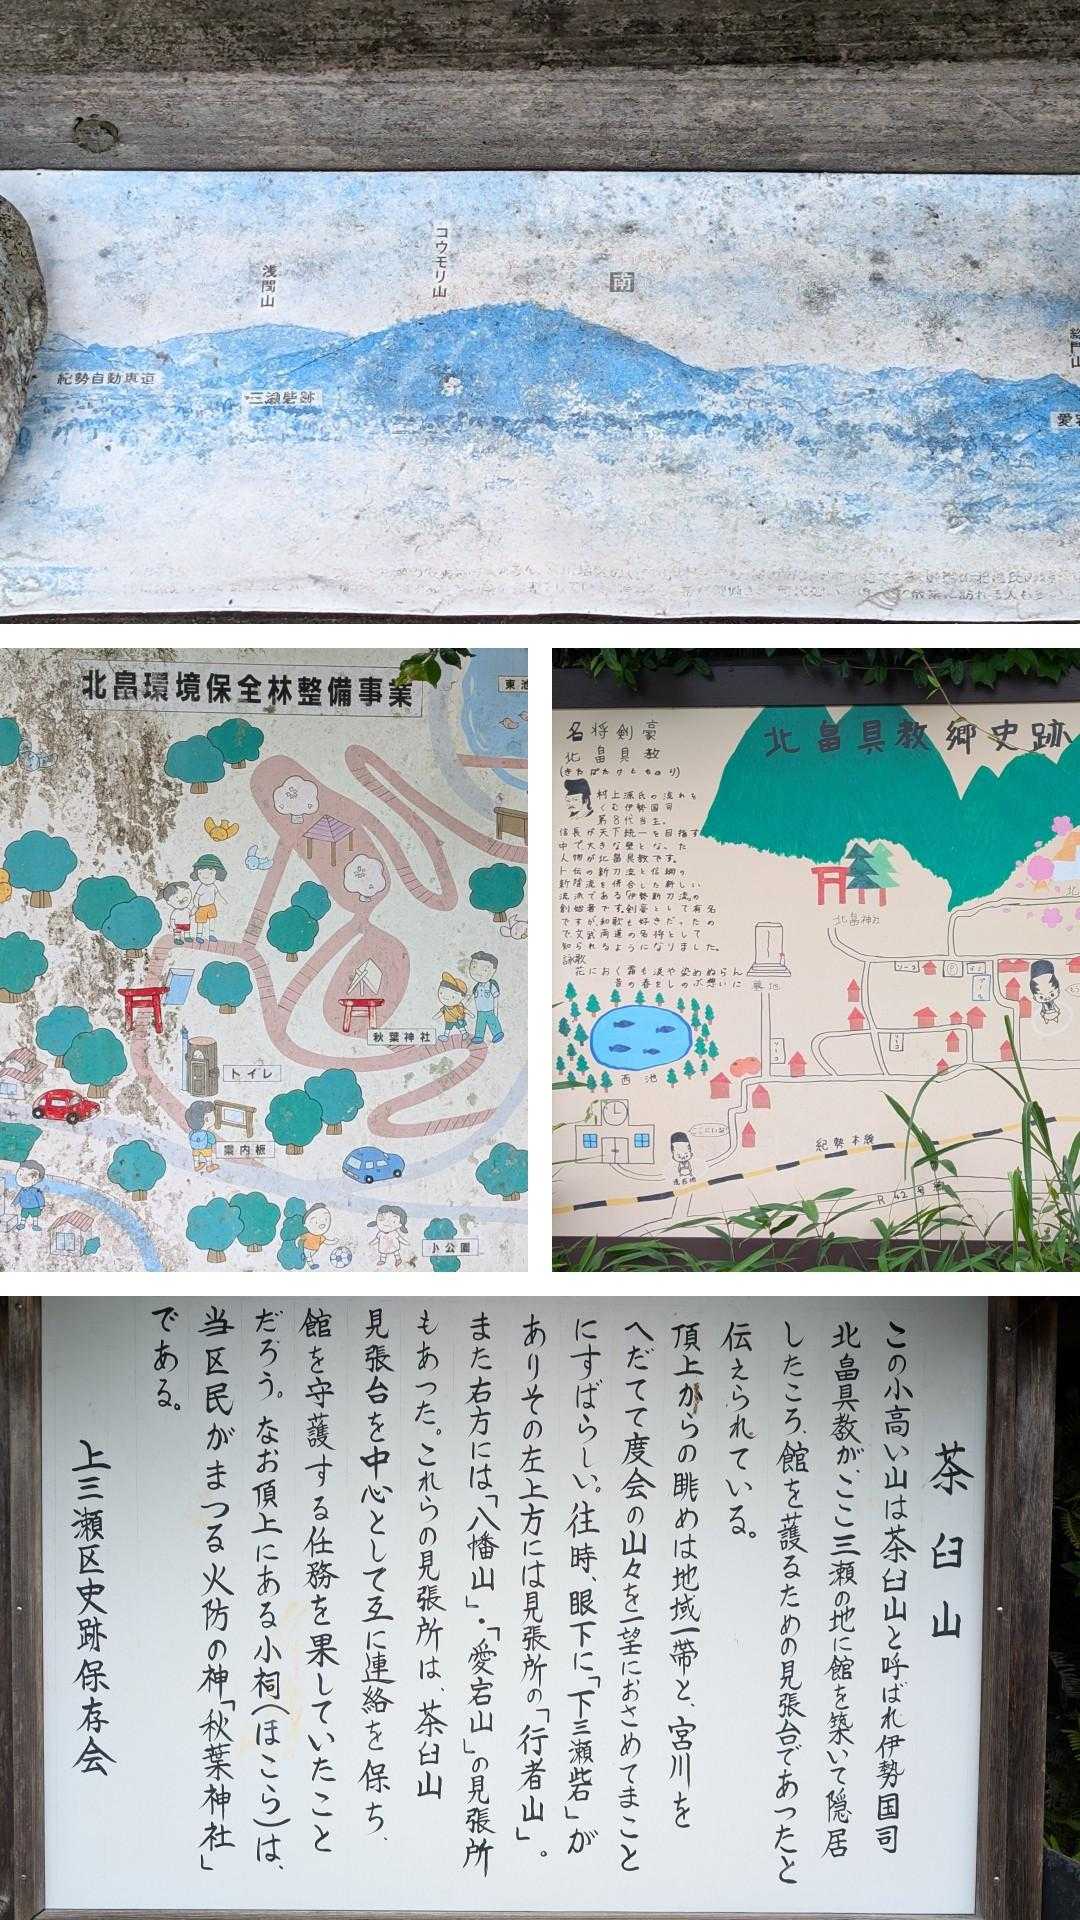 コウモリ山
浅間山
南
紀勢自動車道
三瀬砦跡
北畠環境保全林整備事業
東池
秋葉神社
トイレ
案内板
小公園
北畠具教郷史跡
名将剣豪
北畠具教
(きたばたけとものり)
村上源氏の流れを
くむ伊勢国司
第8代当主。
信長が天下統一を目指す
中で大きな壁となった
人物が北畠具教です。
卜伝の新刀流と信綱の
新陰流を併合した新しい
流派である「伊勢新刀流」の
創始者です。剣豪として有名
ですが、和歌も好きだったの
で文武両道の名将として
知られるようになりました。
詠歌
花におく露も涙や染めぬらん
昔の春をしのぶ想いに
北畠神社
墓地
ソーコ
ソーコ
ソーコ
プール
西池
ここにいるよ
現在地
紀勢本線
R42号線
茶臼山
この小高い山は茶臼山と呼ばれ伊勢国司
北畠具教がここ三瀬の地に館を築いて隠居
したころ、館を護るための見張台であったと
伝えられている。
頂上からの眺めは地域一帯と、宮川を
へだてて度会の山々を一望におさめてまこと
にすばらしい。往時、眼下に「下三瀬砦」が
ありその左上方には見張所の「行者山」。
また右方には「八幡山」・「愛宕山」の見張所
もあった。これらの見張所は、茶臼山
見張台を中心として互に連絡を保ち、
館を守護する任務を果していたこと
だろう。なお頂上にある小祠(ほこら)は、
当区民がまつる火防の神「秋葉神社」
である。
上三瀬区史跡保存会